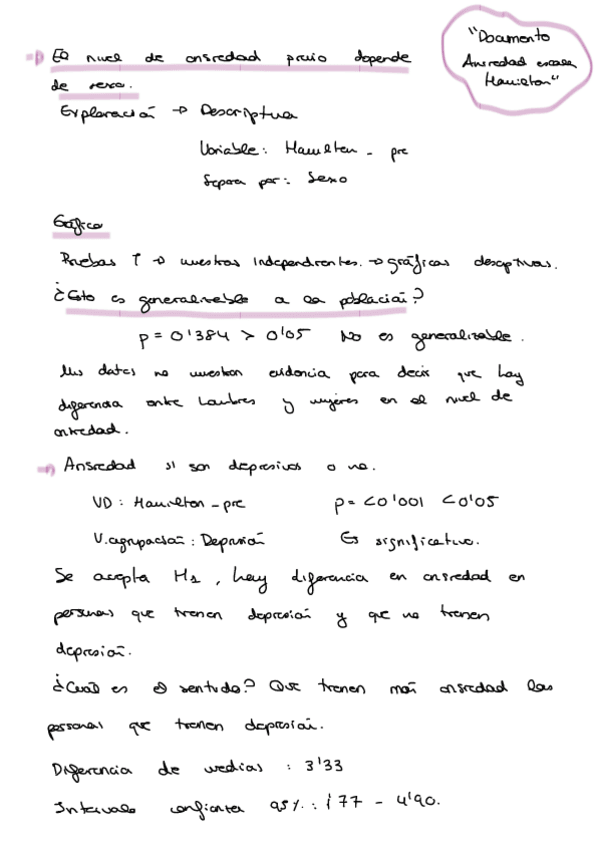 "Documento
Ansiedad escala
Hamilton"
→ El nivel de ansiedad previo depende
de sexo.
Exploración → Descriptiva
Variable: Hamilton - pre
Separa por: Sexo
Gráfico
Pruebas T → muestras independientes. → gráficas descptivas.
¿Esto es generalizable a la población?
p = 0'384 > 0'05 No es generalizable.
Mis datos no muestran evidencia para decir que hay
diferencia entre hombres y mujeres en el nivel de
ansiedad.
→ Ansiedad si son depresivos o no.
VD: Hamilton - pre p = <0'001 <0'05
V. agrupación: Depresión Es significativo.
Se acepta H1, hay diferencia en ansiedad en
personas que tienen depresión y que no tienen
depresión.
¿Cuál es el sentido? Que tienen más ansiedad las
personas que tienen depresión.
Diferencia de medias : 3'33
Intervalo confianza 95%: 1'77 - 4'90.